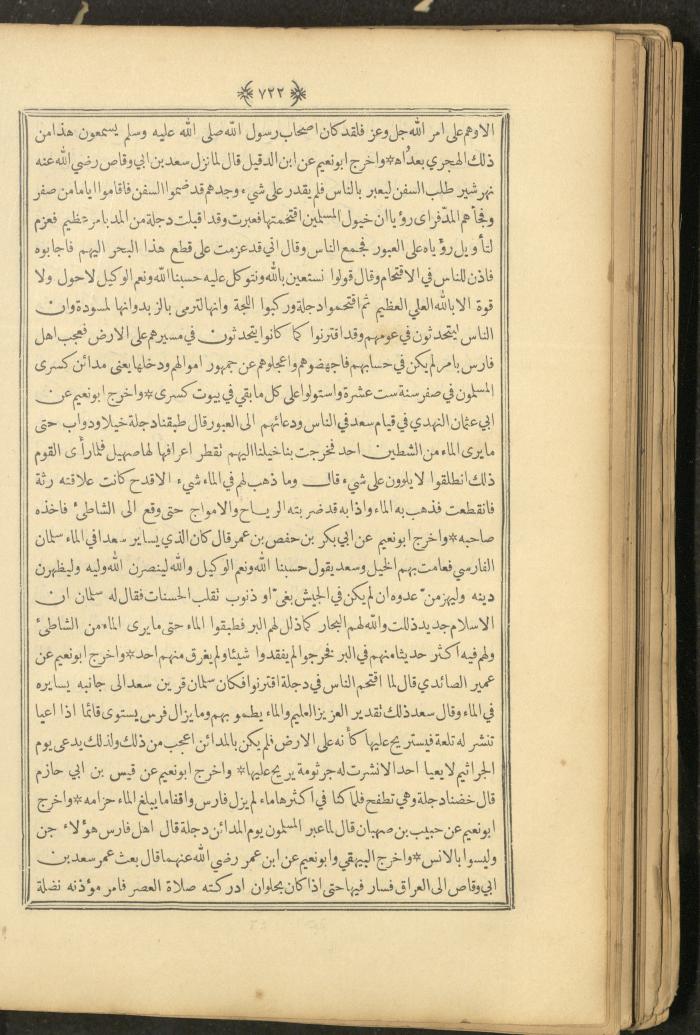 ﴿٧٢٢﴾
الا وهم على امر الله جل وعز فلقد كان اصحاب رسول الله صلى الله عليه وسلم يسمعون هذا من
ذلك الهجري بعد اه * واخرج ابو نعيم عن ابن الدقيل قال لما نزل سعد بن ابي وقاص رضي الله عنه
نهر شير طلب السفن ليعبر بالناس فلم يقدر على شيء وجدهم قد ضموا السفن فاقاموا اياما من صفر
وفجأهم المد فراى رؤيا ان خيول المسلمين اقتحمتها فعبرت وقد اقبلت دجلة من المد بامر عظيم فعزم
لتأويل رؤياه على العبور فجمع الناس وقال اني قد عزمت على قطع هذا البحر اليهم فاجابوه
فاذن للناس في الاقتحام وقال قولوا نستعين بالله ونتوكل عليه حسبنا الله ونعم الوكيل لا حول ولا
قوة الا بالله العلي العظيم ثم اقتحموا دجلة وركبوا اللجة وانها لترمى بالزبد وانها لمسودة وان
الناس ليتحدثون في عومهم وقد اقترنوا كما كانوا يتحدثون في مسيرهم على الارض فعجب اهل
فارس بامر لم يكن في حسابهم فاجهضوهم واعجلوهم عن جمهور اموالهم ودخلها يعنى مدائن كسرى
المسلمون في صفر سنة ست عشرة واستولوا على كل ما بقي في بيوت كسرى * واخرج ابو نعيم عن
ابي عثمان النهدي في قيام سعد في الناس ودعائهم الى العبور قال طبقنا دجلة خيلا ودواب حتى
ما يرى الماء من الشطين احد فخرجت بنا خيلنا اليهم تقطر اعرافها لها صهيل فلما رأى القوم
ذلك انطلقوا لا يلوون على شيء قال وما ذهب لهم في الماء شيء الا قدح كانت علاقته رثة
فانقطعت فذهب به الماء واذا به قد ضربته الرياح والامواج حتى وقع الى الشاطئ فاخذه
صاحبه * واخرج ابو نعيم عن ابي بكر بن حفص بن عمر قال كان الذي يساير سعدا في الماء سلمان
الفارسي فعامت بهم الخيل وسعد يقول حسبنا الله ونعم الوكيل والله لينصرن الله وليه وليظهرن
دينه وليهزمن عدوه ان لم يكن في الجيش بغي او ذنوب تقلب الحسنات فقال له سلمان ان
الاسلام جديد ذللت والله لهم البحار كما ذلل لهم البر فطبقوا الماء حتى ما يرى الماء من الشاطئ
ولهم فيه اكثر حديثا منهم في البر فخرجوا لم يفقدوا شيئا ولم يغرق منهم احد * واخرج ابو نعيم عن
عمير الصائدي قال لما اقتحم الناس في دجلة اقترنوا فكان سلمان قرين سعد الى جانبه يسايره
في الماء وقال سعد ذلك تقدير العزيز العليم والماء يطمو بهم وما يزال فرس يستوى قائما اذا اعيا
تنشر له تلعة فيستريح عليها كأنه على الارض فلم يكن بالمدائن اعجب من ذلك ولذلك يدعى يوم
الجراثيم لا يعيا احد الا نشرت له جرثومة يريح عليها * واخرج ابو نعيم عن قيس بن ابي حازم
قال خضنا دجلة وهي تطفح فلما كنا في اكثرها ماء لم يزل فارس واقفا ما يبلغ الماء حزامه * واخرج
ابو نعيم عن حبيب بن صهبان قال لما عبر المسلمون يوم المدائن دجلة قال اهل فارس هؤلاء جن
وليسوا بالانس * واخرج البيهقي وابو نعيم عن ابن عمر رضي الله عنهما قال بعث عمر سعد بن
ابي وقاص الى العراق فسار فيها حتى اذا كان بحلوان ادركته صلاة العصر فامر مؤذنه نضلة